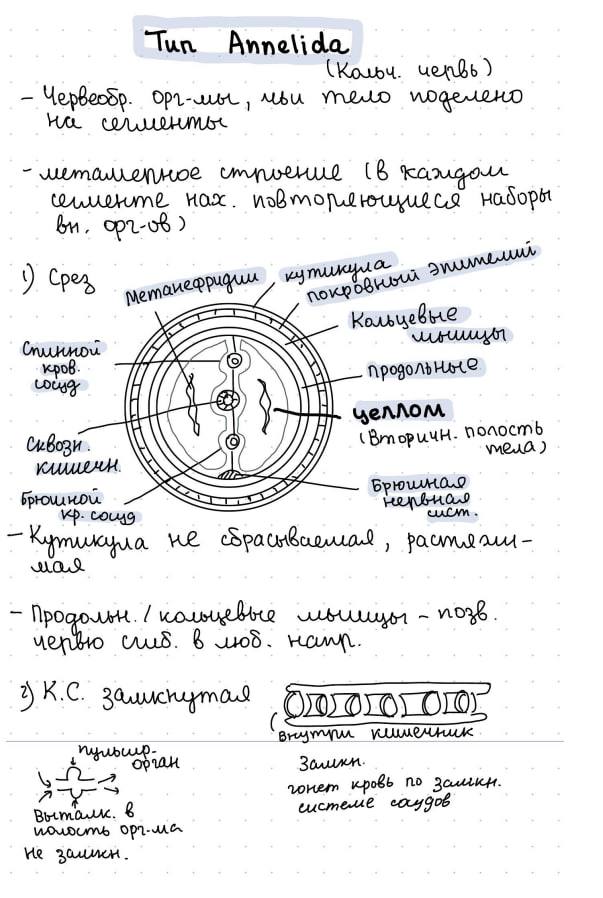 Тип Annelida
(Кольч. червь)
- Червеобр. орг-мы, чьи тело поделено
на сегменты
- метамерное строение (в каждом
сегменте нах. повторяющиеся наборы
вн. орг-ов)
1) Срез
Метанефридии
кутикула
покровный эпителий
Кольцевые
мышцы
Спинной
кров.
сосуд
продольные
целлом
(Вторичн. полость
тела)
Сквозн.
кишечн.
Брюшной
кр. сосуд
Брюшная
нервная
сист.
- Кутикула не сбрасываемая, растяжи-
мая
- Продольн. / кольцевые мышцы - позв.
червю сгиб. в люб. напр.
2) К.С. замкнутая
Внутри кишечник
пульсир.
орган
Выталк. в
полость орг-ма
Не замкн.
Замкн.
гонет кровь по замкн.
системе сосудов